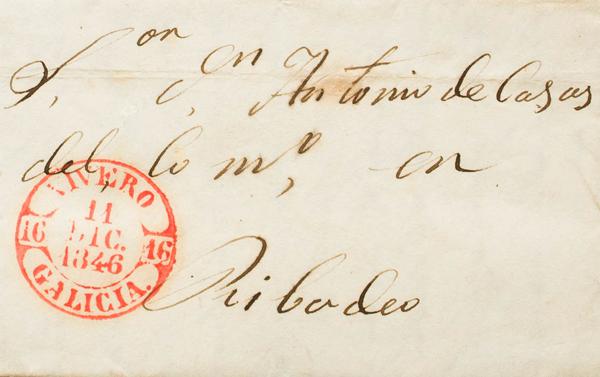 S.or D.n Antonio de Casas
del, Co m.o en
Ribadeo
VIVERO
11
DIC.
1846
16 16
GALICIA.